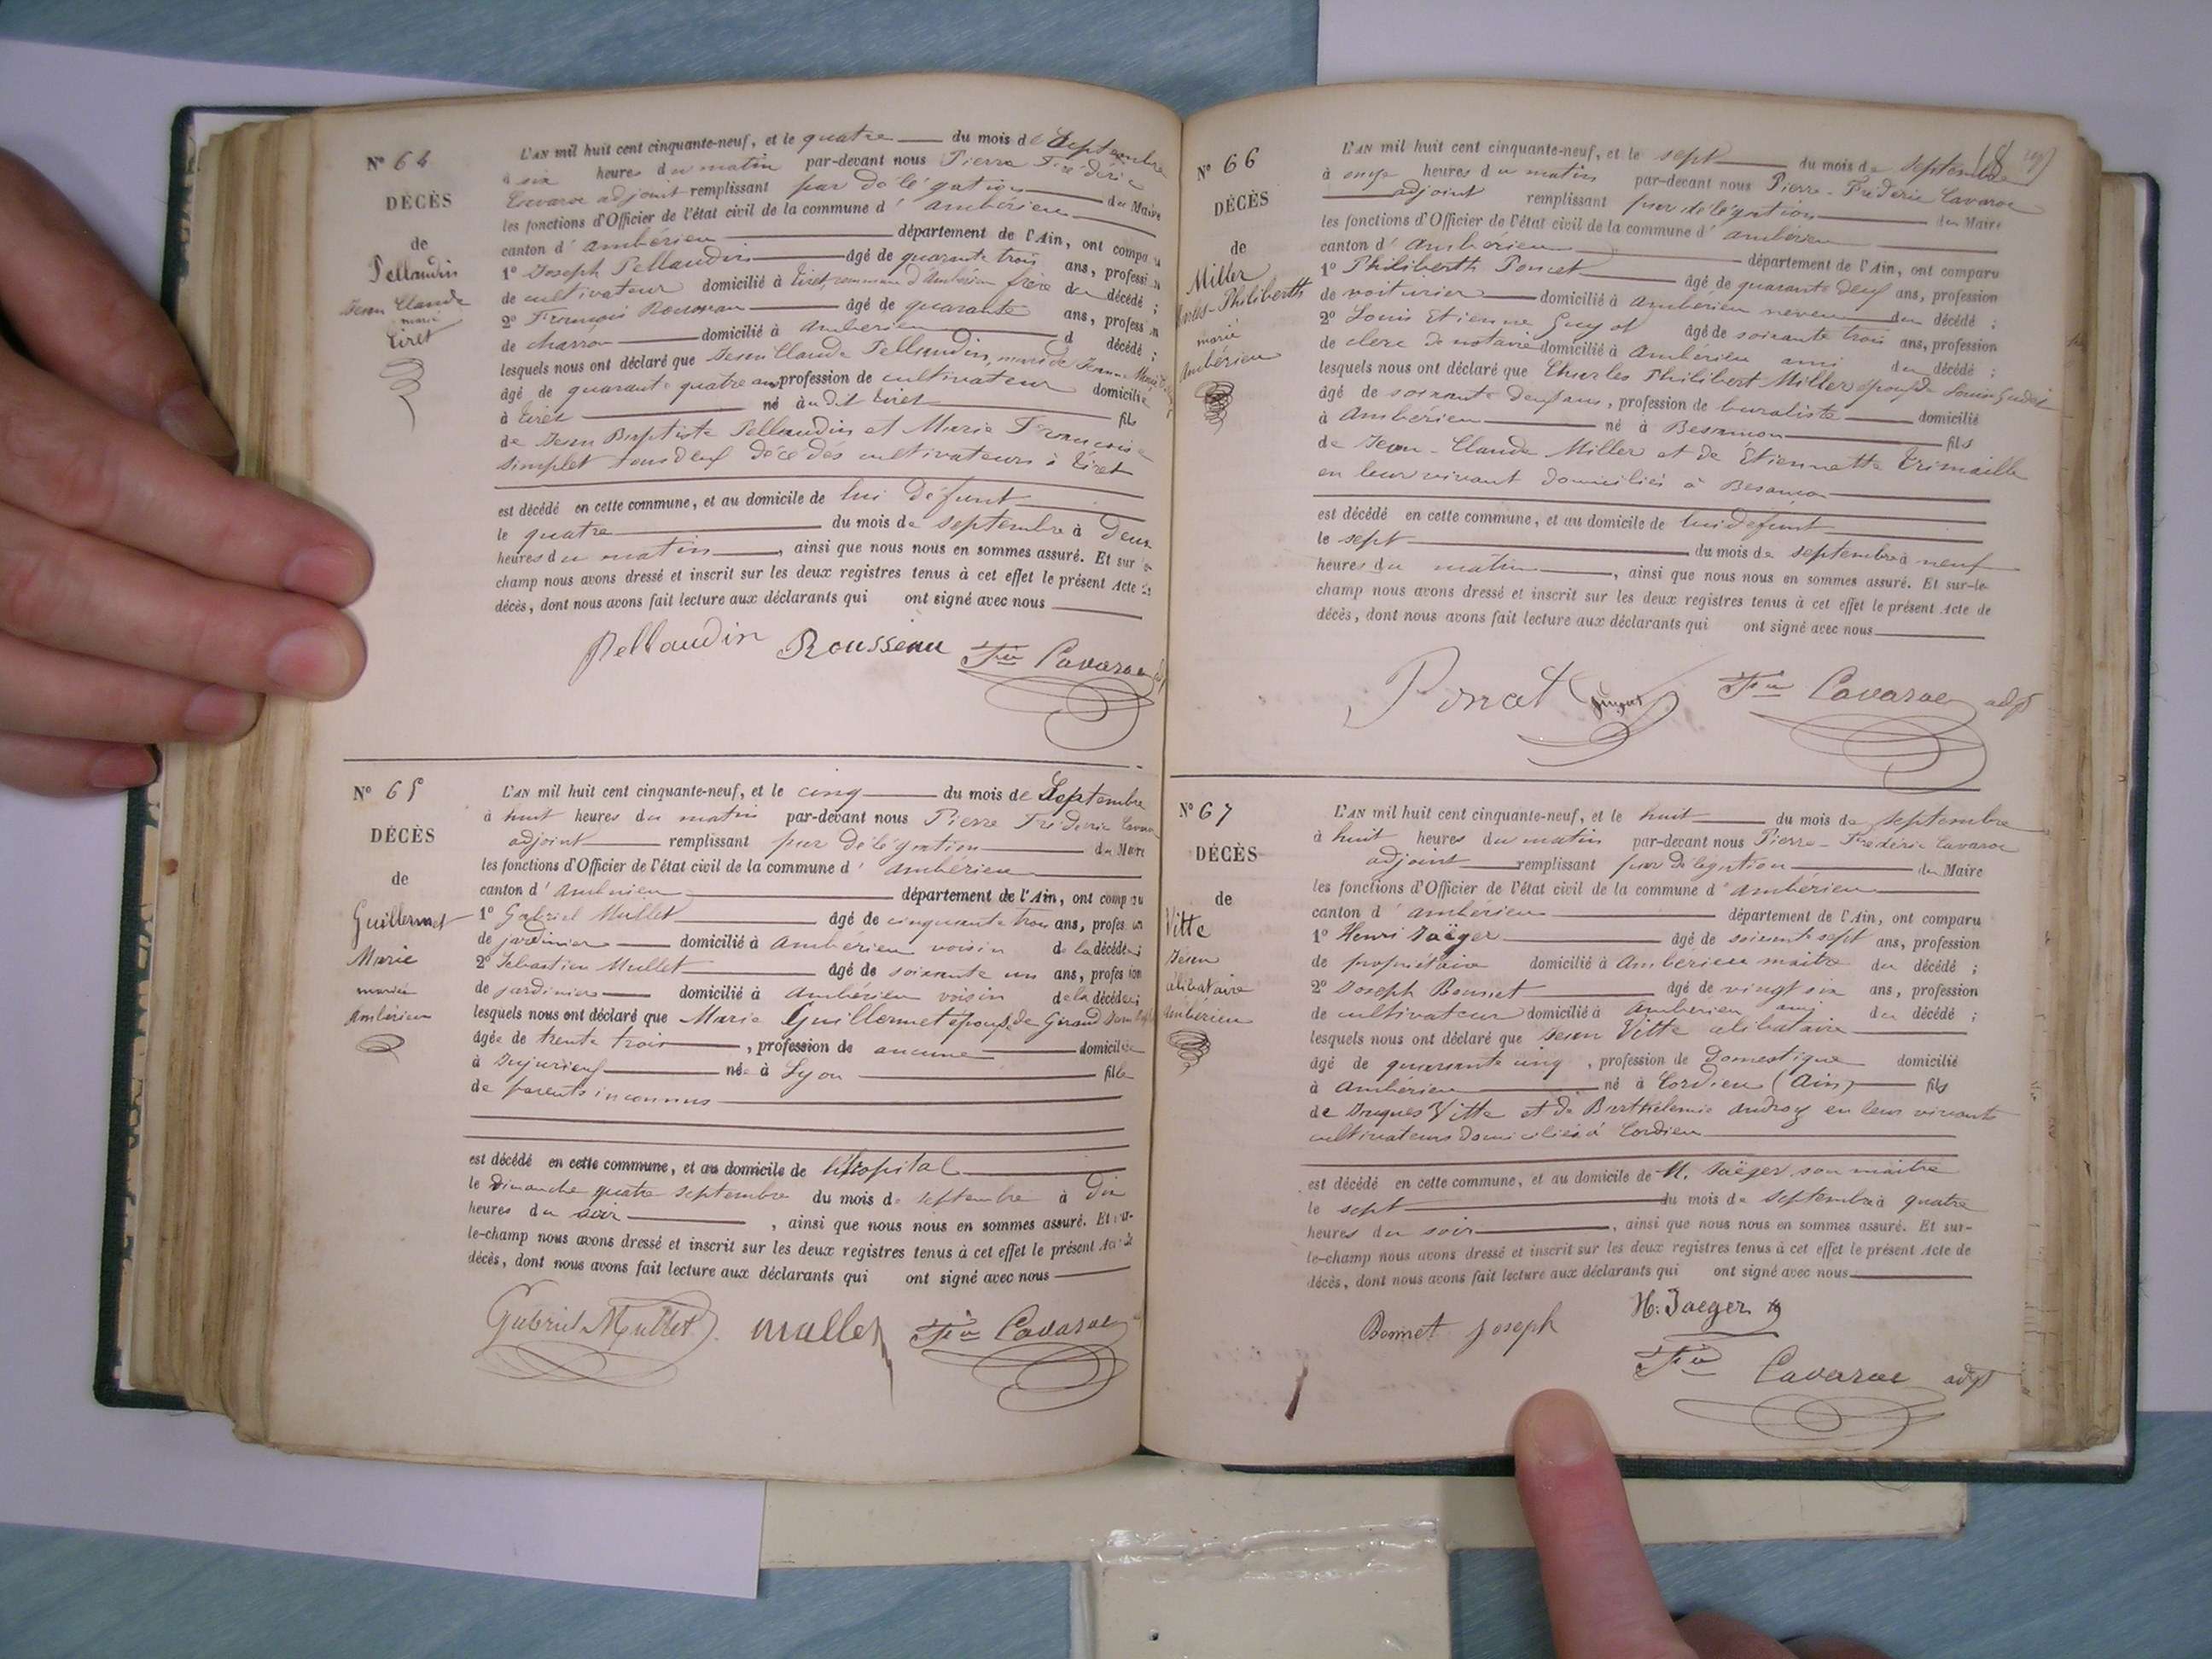 N° 64
DÉCÈS
de
Pellaudin
Jean Claude
marié
Tiret
L'AN mil huit cent cinquante-neuf, et le quatre du mois de Septembre
à six heures du matin par-devant nous Pierre Frédéric
Cavaroc adjoint remplissant par délégation du Maire
les fonctions d'Officier de l'état civil de la commune d'ambérieu
canton d'ambérieu département de l'Ain, ont comparu
1° Joseph Pellaudin âgé de quarante trois ans, profession
de cultivateur domicilié à Tiret, commune d'Ambérieu frère du décédé ;
2° François Rousseau âgé de quarante ans, profession
de charron domicilié à Ambérieu d décédé ;
lesquels nous ont déclaré que Jean Claude Pellaudin, mari de Jeanne Marie
âgé de quarante quatre ans profession de cultivateur domicilié
à Tiret né audit Tiret fils
de Jean Baptiste Pellaudin et Marie Françoise
Simplet tous deux décédés cultivateurs à Tiret
est décédé en cette commune, et au domicile de lui défunt
le quatre du mois de septembre à Deux
heures du matin, ainsi que nous nous en sommes assuré. Et sur le
champ nous avons dressé et inscrit sur les deux registres tenus à cet effet le présent Acte de
décès, dont nous avons fait lecture aux déclarants qui ont signé avec nous
Pellaudin Rousseau Fic Cavaroc
N° 65
DÉCÈS
de
Guillermet
Marie
mariée
Ambérieu
L'AN mil huit cent cinquante-neuf, et le cinq du mois de Septembre
à huit heures du matin par-devant nous Pierre Frédéric Cavaroc
adjoint remplissant par délégation du Maire
les fonctions d'Officier de l'état civil de la commune d'ambérieu
canton d'Ambérieu département de l'Ain, ont comparu
1° Gabriel Mullet âgé de cinquante trois ans, profession
de jardinier domicilié à Ambérieu voisin de la décédée ;
2° Sébastien Mullet âgé de soixante un ans, profession
de jardinier domicilié à Ambérieu voisin de la décédée ;
lesquels nous ont déclaré que Marie Guillermet épouse de Giraud
âgée de trente trois, profession de aucune domiciliée
à Jujurieux née à Lyon fille
de parents inconnus
est décédé en cette commune, et au domicile de l'hôpital
le dimanche quatre septembre du mois de septembre à Dix
heures du soir, ainsi que nous nous en sommes assuré. Et sur-
le-champ nous avons dressé et inscrit sur les deux registres tenus à cet effet le présent Acte de
décès, dont nous avons fait lecture aux déclarants qui ont signé avec nous
Gabriel Mullet mullet Fic Cavaroc
N° 66
DÉCÈS
de
Miller
Charles-Philiberth
marié
Ambérieu
L'AN mil huit cent cinquante-neuf, et le sept du mois de septembre
à onze heures du matin par-devant nous Pierre-Fréderic Cavaroc
adjoint remplissant par délégation du Maire
les fonctions d'Officier de l'état civil de la commune d'ambérieu
canton d'Ambérieu département de l'Ain, ont comparu
1° Philiberth Poncet âgé de quarante deux ans, profession
de voiturier domicilié à Ambérieu neveu du décédé ;
2° Louis Etienne Guyot âgé de soixante trois ans, profession
de clerc de notaire domicilié à Ambérieu ami du décédé ;
lesquels nous ont déclaré que Charles Philibert Miller époux de
âgé de soixante deux ans, profession de buraliste domicilié
à Ambérieu né à Besançon fils
de Jean-Claude Miller et de Etiennette Trimaille
en leur vivant domiciliés à Besançon
est décédé en cette commune, et au domicile de lui défunt
le sept du mois de septembre à neuf
heures du matin, ainsi que nous nous en sommes assuré. Et sur-le-
champ nous avons dressé et inscrit sur les deux registres tenus à cet effet le présent Acte de
décès, dont nous avons fait lecture aux déclarants qui ont signé avec nous
Poncet Guyot Fic Cavaroc adjt
N° 67
DÉCÈS
de
Vitte
Jean
célibataire
Ambérieu
L'AN mil huit cent cinquante-neuf, et le huit du mois de septembre
à huit heures du matin par-devant nous Pierre-Frédéric Cavaroc
adjoint remplissant par délégation du Maire
les fonctions d'Officier de l'état civil de la commune d'ambérieu
canton d'ambérieu département de l'Ain, ont comparu
1° Henri Jaëger âgé de soixante sept ans, profession
de propriétaire domicilié à Ambérieu maître du décédé ;
2° Joseph Bonnet âgé de vingt six ans, profession
de cultivateur domicilié à Ambérieu ami du décédé ;
lesquels nous ont déclaré que Jean Vitte célibataire
âgé de quarante cinq, profession de Domestique domicilié
à Ambérieu né à Cordieu (Ain) fils
de Jacques Vitte et de Barthélemie en leur vivants
cultivateurs domiciliés à Cordieu
est décédé en cette commune, et au domicile de M. Jaëger son maître
le sept du mois de septembre à quatre
heures du soir, ainsi que nous nous en sommes assuré. Et sur-
le-champ nous avons dressé et inscrit sur les deux registres tenus à cet effet le présent Acte de
décès, dont nous avons fait lecture aux déclarants qui ont signé avec nous
Bonnet Joseph H. Jaeger
Fic Cavaroc adjt